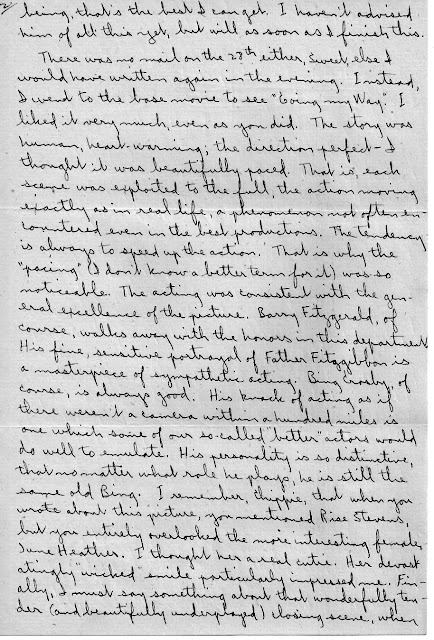 2/
being, that's the best I can get. I haven't advised
him of all this yet, but will as soon as I finish this.
There was no mail on the 28th either, Sweet, else I
would have written again in the evening. Instead,
I went to the base movie to see "Going my Way". I
liked it very much, even as you did. The story was
human, heart-warming; the direction perfect - I
thought it was beautifully paced. That is, each
scene was exploited to the full, the action moving
exactly as in real life, a phenomenon not often en-
countered even in the best productions. The tendency
is always to speed up the action. That is why the
"pacing" (I don't know a better term for it) was so
noticeable. The acting was consistent with the gen-
eral excellence of the picture. Barry Fitzgerald, of
course, walks away with the honors in this department
His fine, sensitive portrayal of Father Fitzgibbon is
a masterpiece of sympathetic acting. Bing Crosby, of
course, is always good. His knack of acting as if
there weren't a camera within a hundred miles is
one which some of our so-called "better" actors would
do well to emulate. His personality is so distinctive,
that no matter what role he plays, he is still the
same old Bing. I remember, Chippie, that when you
wrote about this picture, you mentioned Rise Stevens,
but you entirely overlooked the more interesting female
June Heather. I thought her a real cutie. Her devast
atingly "wicked" smile particularly impressed me. Fin-
ally, I must say something about that wonderfully ten-
der (and beautifully underplayed) closing scene, when